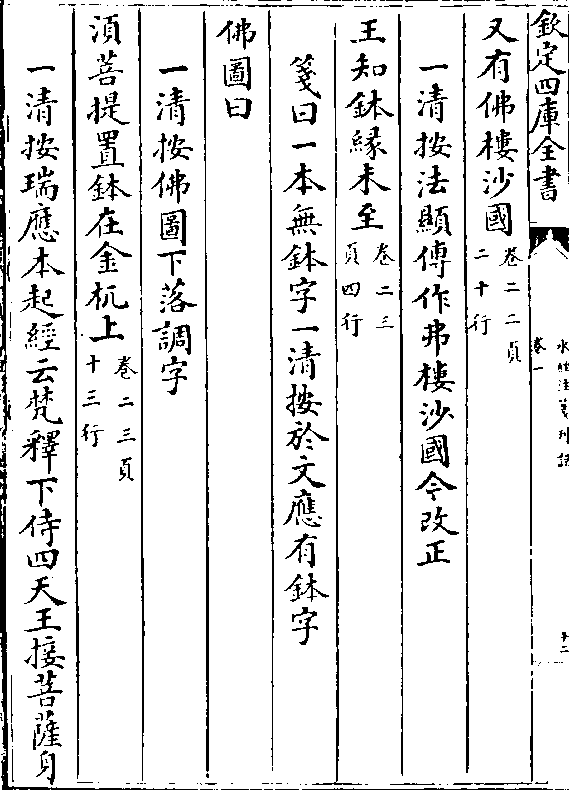 欽定四庫全書
水經注箋刊誤
卷一
十二
又有佛樓沙國
卷二二頁
二十行
一清按法顯傳作弗樓沙國今改正
王知鉢緣未至
卷二三
頁四行
箋曰一本無鉢字一清按於文應有鉢字
佛圖曰
一清按佛圖下落調字
須菩提置鉢在金杌上
卷二三頁
十三行
一清按瑞應本起經云梵釋下侍四天王接菩薩身